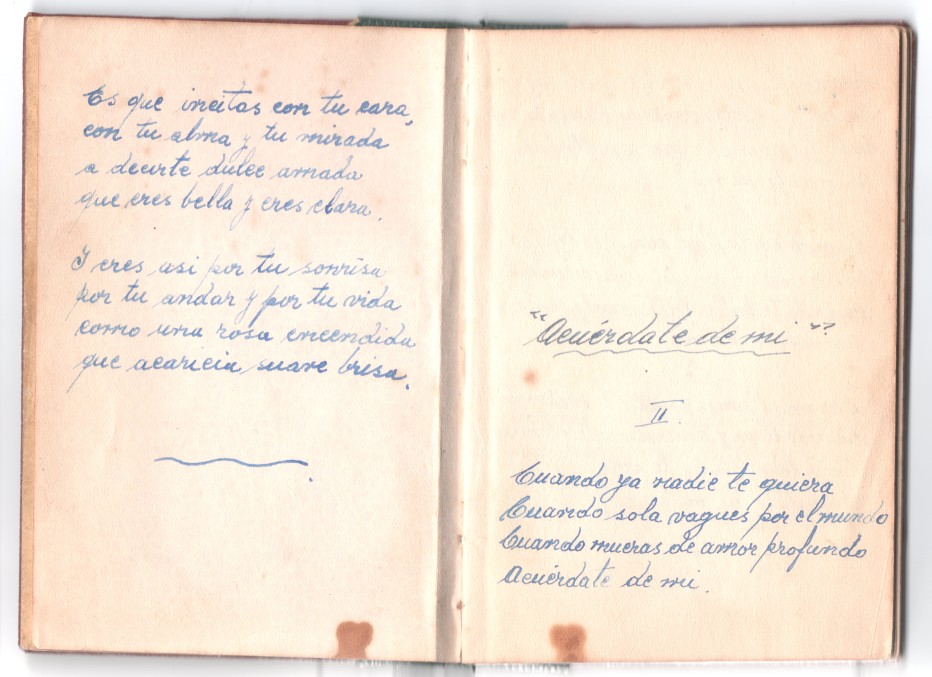 Es que incitas con tu cara,
con tu alma y tu mirada
a decirte dulce amada
que eres bella y eres clara.
Y eres asi por tu sonrisa
por tu andar y por tu vida
como una rosa encendida
que acaricia suave brisa.
"Acuérdate de mi"
II.
Cuando ya nadie te quiera
Cuando sola vagues por el mundo
Cuando mueras de amor profundo
Acuérdate de mi.